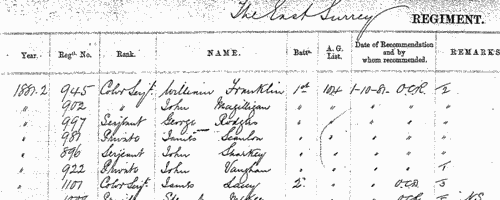 The East Surrey REGIMENT.
Year. Regtl. No. Rank. NAME. Batn. A. G. List. Date of Recommendation and by whom recommended. REMARKS
1881-2 945 Color Serjt. William Franklin 1st 104 1-10-81 O.C.R. 2
" 902 " John Magilligan " " " " "
" 997 Serjeant George Rodgers " " " " "
" 987 Private James Scanlon " " " "
" 896 Serjeant John Sharkey " " " "
" 922 Private John Vaughan " " " " 1
" 1101 Color Serjt. James Lacey 2 " " O.C.R. 3